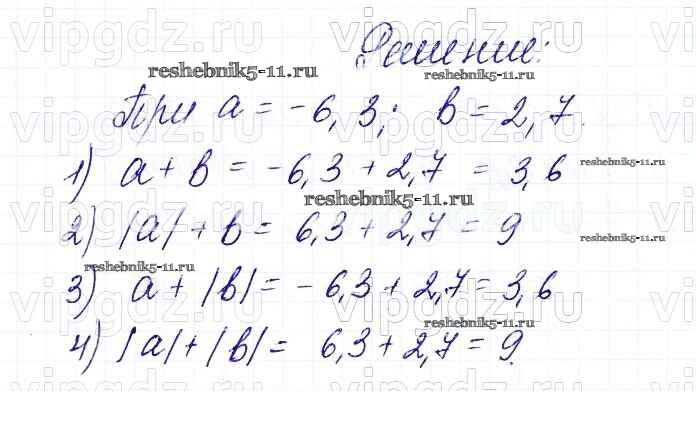 Решение:
reshebnik5-11.ru reshebnik5-11.ru
При a = -6,3; b = 2,7.
1) a + b = -6,3 + 2,7 = 3,6 reshebnik5-11.ru
reshebnik5-11.ru
2) |a| + b = 6,3 + 2,7 = 9 reshebnik5-11.ru
reshebnik5-11.ru
3) a + |b| = -6,3 + 2,7 = 3,6
reshebnik5-11.ru
4) |a| + |b| = 6,3 + 2,7 = 9.
vipgdz.ru vipgdz.ru vipgdz.ru
vipgdz.ru vipgdz.ru vipgdz.ru
vipgdz.ru vipgdz.ru vipgdz.ru
vipgdz.ru vipgdz.ru vipgdz.ru
vipgdz.ru vipgdz.ru vipgdz.ru